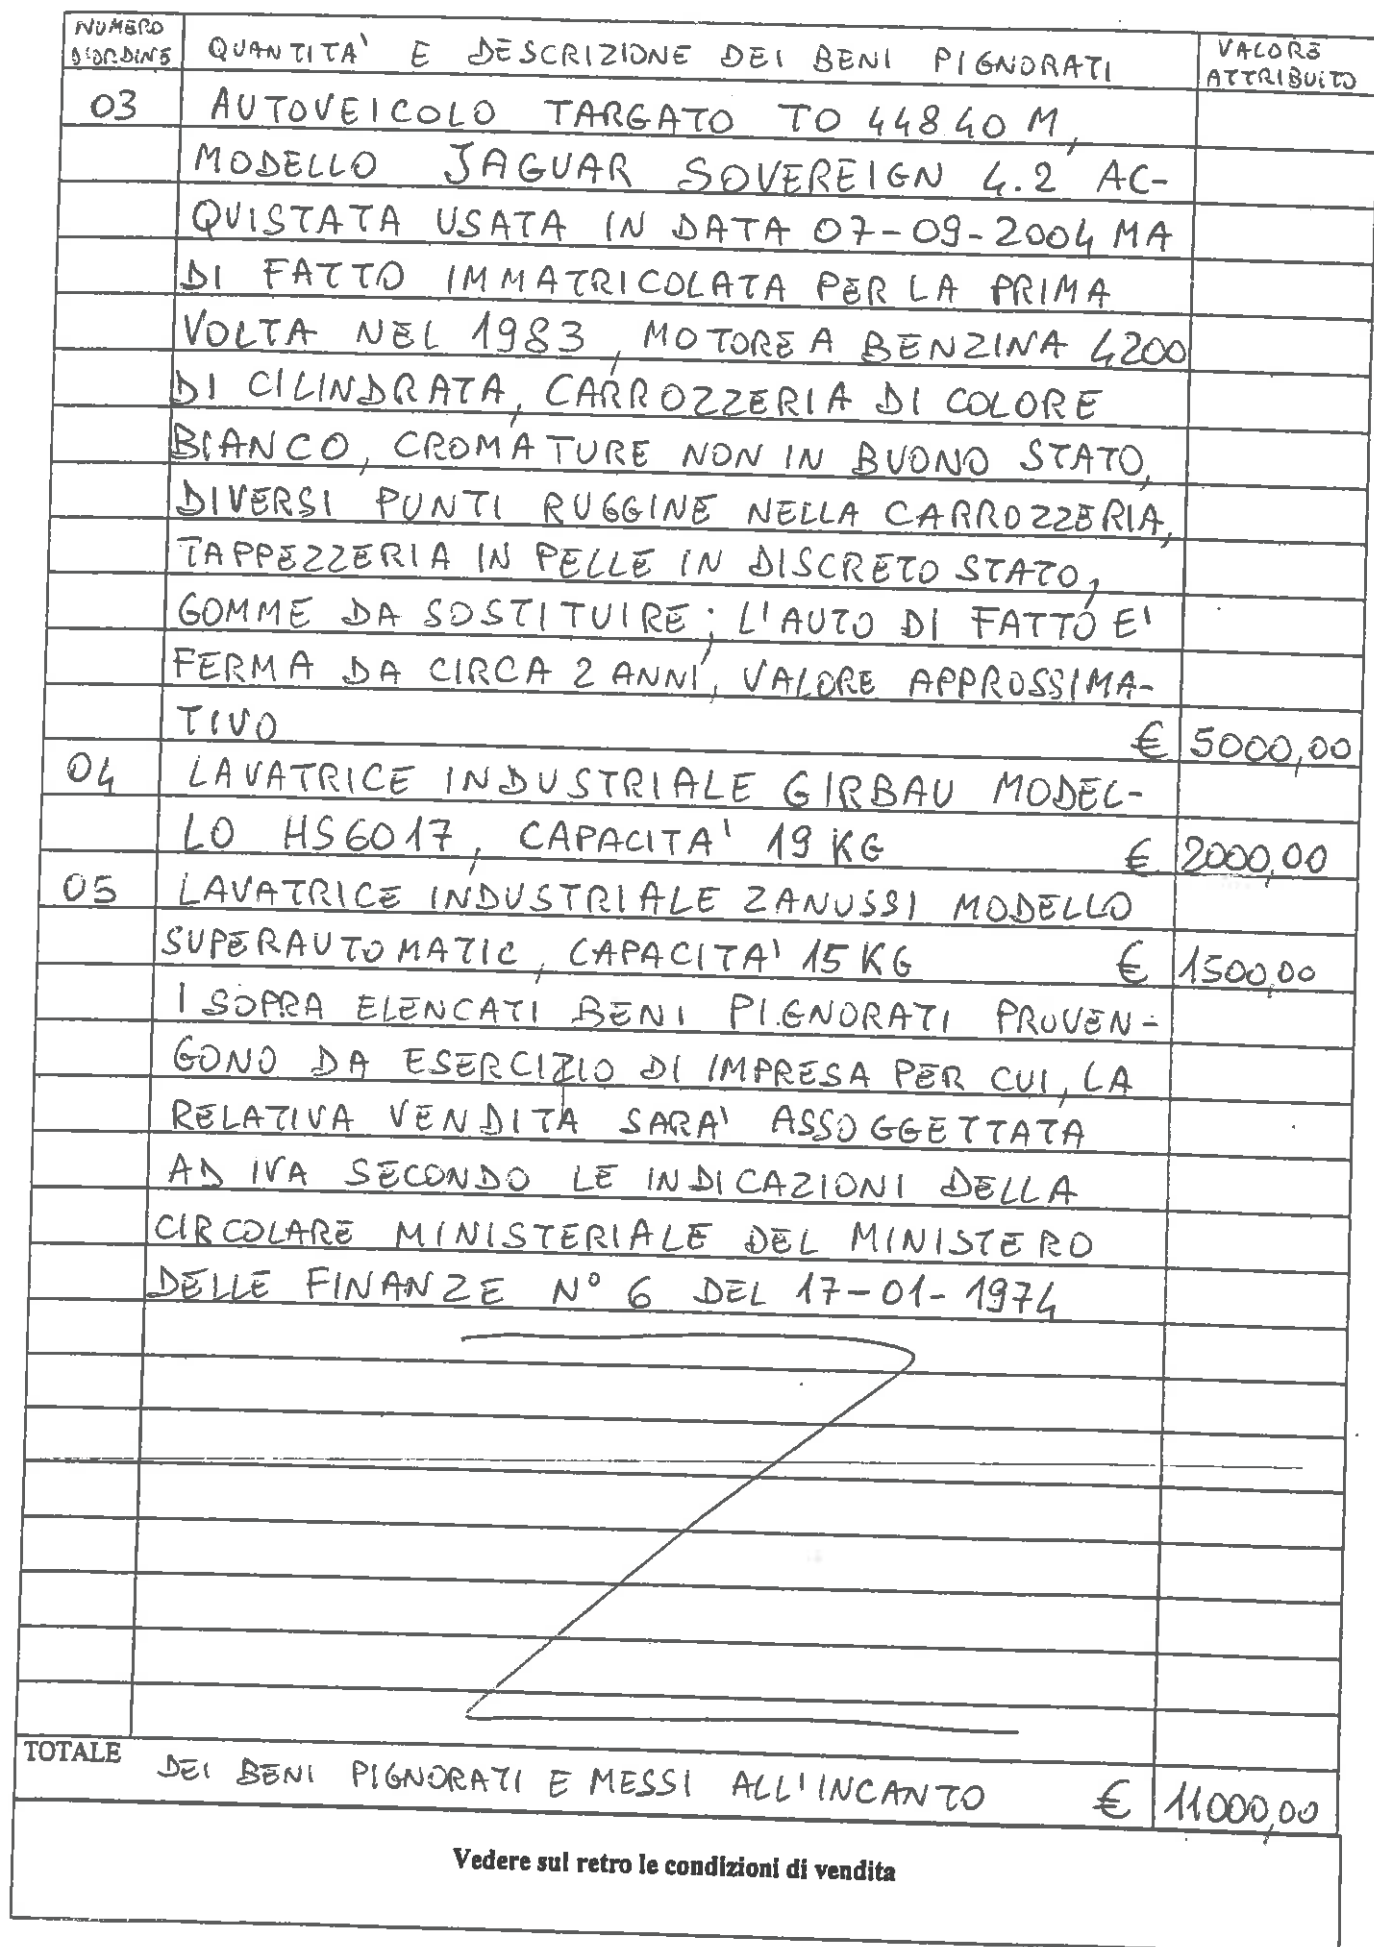 NUMERO D'ORDINE QUANTITA' E DESCRIZIONE DEI BENI PIGNORATI VALORE ATTRIBUITO
03 AUTOVEICOLO TARGATO TO 44840 M,
MODELLO JAGUAR SOVEREIGN 4.2 AC-
QUISTATA USATA IN DATA 07-09-2004 MA
DI FATTO IMMATRICOLATA PER LA PRIMA
VOLTA NEL 1983, MOTORE A BENZINA 4200
DI CILINDRATA, CARROZZERIA DI COLORE
BIANCO, CROMATURE NON IN BUONO STATO,
DIVERSI PUNTI RUGGINE NELLA CARROZZERIA,
TAPPEZZERIA IN PELLE IN DISCRETO STATO,
GOMME DA SOSTITUIRE; L'AUTO DI FATTO E'
FERMA DA CIRCA 2 ANNI, VALORE APPROSSIMA-
TIVO € 5000,00
04 LAVATRICE INDUSTRIALE GIRBAU MODEL-
LO HS6017, CAPACITA' 19 KG € 2000,00
05 LAVATRICE INDUSTRIALE ZANUSSI MODELLO
SUPERAUTOMATIC, CAPACITA' 15 KG € 1500,00
I SOPRA ELENCATI BENI PIGNORATI PROVEN-
GONO DA ESERCIZIO DI IMPRESA PER CUI, LA
RELATIVA VENDITA SARA' ASSOGGETTATA
AD IVA SECONDO LE INDICAZIONI DELLA
CIRCOLARE MINISTERIALE DEL MINISTERO
DELLE FINANZE N° 6 DEL 17-01-1974
TOTALE DEI BENI PIGNORATI E MESSI ALL'INCANTO € 11000,00
Vedere sul retro le condizioni di vendita